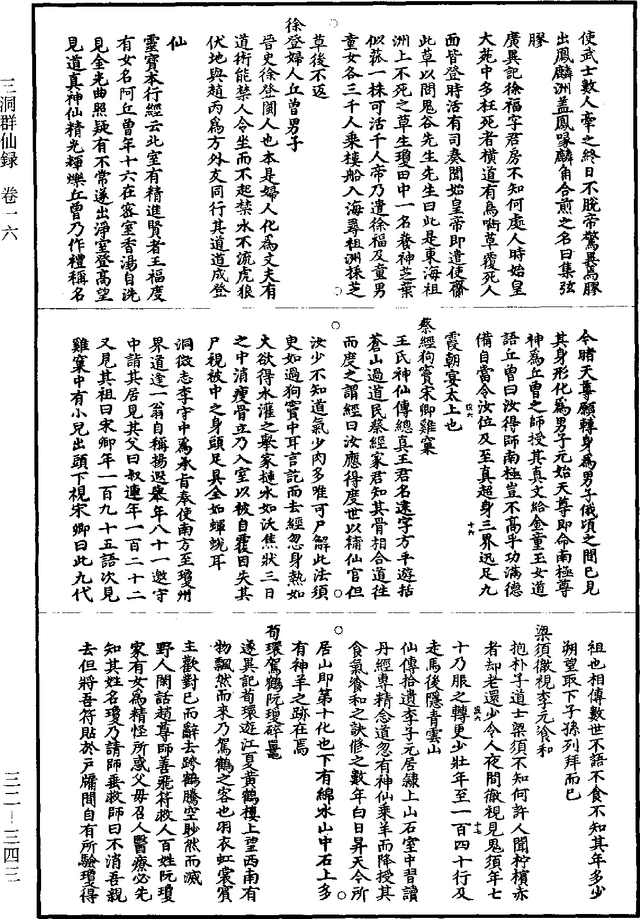 三洞群仙録　卷一六
三二—三四三
使武士數人牽之終日不脫帝驚異焉膠
出鳳麟洲蓋鳳喙麟角合煎之名曰集弦
膠
廣異記徐福字君房不知何處人時始皇
大苑中多枉死者橫道有鳥啣草覆死人
面皆登時活有司奏聞始皇帝即遣使齎
此草以問鬼谷先生先生曰此是東海祖
洲上不死之草生瓊田中一名養神芝葉
似菰一株可活千人帝乃遣徐福及童男
童女各三千人乘樓船入海尋祖洲採芝
草後不返
徐登婦人丘曾男子
晉史徐登閩人也本是婦人化為丈夫有
道術能禁人令坐而不起禁水不流虎狼
伏地與趙丙為方外友同行其道道成登
仙
靈寶本行經云此室有精進賢者王福度
有女名阿丘曾年十六在密室香湯自洗
見金光曲照疑有不常遂出淨室登高望
見道真神仙精光輝爍丘曾乃作禮稱名
今睹天尊願轉身為男子俄頃之間已見
其身形化為男子元始天尊即命南極尊
神為丘曾之師授其真文給金童玉女道
語丘曾曰汝得師南極豈不高乎功滿德
備自當令汝位及至真超身三界逍足九
霞朝宴太上也
蔡經狗竇宋卿雞窠
王氏神仙傳總真王君名遠字方平遊括
蒼山過道民蔡經家君知其骨相合道往
而度之謂經曰汝應得度世以補仙官但
汝少不知道氣少肉多唯可尸解此法須
臾如過狗竇中耳言訖而去經忽身熱如
火欲得水灌之舉家汲水如沃焦狀三日
之中消瘦骨立乃入室以被自覆因失其
尸視被中之身頭足具全如蟬蛻耳
洞微志李守中為承旨奉使南方至瓊州
界道逢一翁自稱楊遐舉年八十一邀守
中詣其居見其父曰叔連年一百二十二
又見其祖曰宋卿年一百九十五語次見
雞窠中有小兒出頭下視宋卿曰此九代
祖也相傳數世不語不食不知其年多少
朔望取下子孫列拜而已
梁須徹視李元飡和
抱朴子道士梁須不知何許人聞柠檳赤
者却老還少令人夜間徹視見鬼須年七
十乃服之轉更少壯年至一百四十行及
走馬後隱青雲山
仙傳拾遺李子元居隸上山石室中習讀
丹經專精念道忽有神仙乘羊而降授其
食氣飡和之訣修之數年白日昇天今所
居山即第十化也下有綿水山中石上多
有神羊之跡在焉
荀環駕鶴阮瓊碎鼉
述異記荀環遊江夏黃鶴樓上望西南有
物飄然而來乃駕鶴之客也羽衣虹裳賓
主歡對已而辭去跨鶴騰空眇然而滅
野人閑話趙尊師善飛符救人百姓阮瓊
家有女為精怪所惑父母召人醫療必先
知其姓名瓊乃請師垂救師曰不消吾親
去但將吾符貼於戶牖間自有所驗瓊得